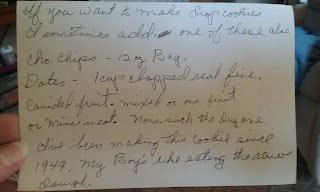 If you want to make drop cookies
I sometimes add one of these also
Cho. Chips - 12 oz Bag.
Dates - 1 cup chopped real fine.
Candied fruit - mixed or one fruit
or Mincemeat. None such the dry one.
I've been making this cookie since
1949. My Boys like eating the raw
dough.